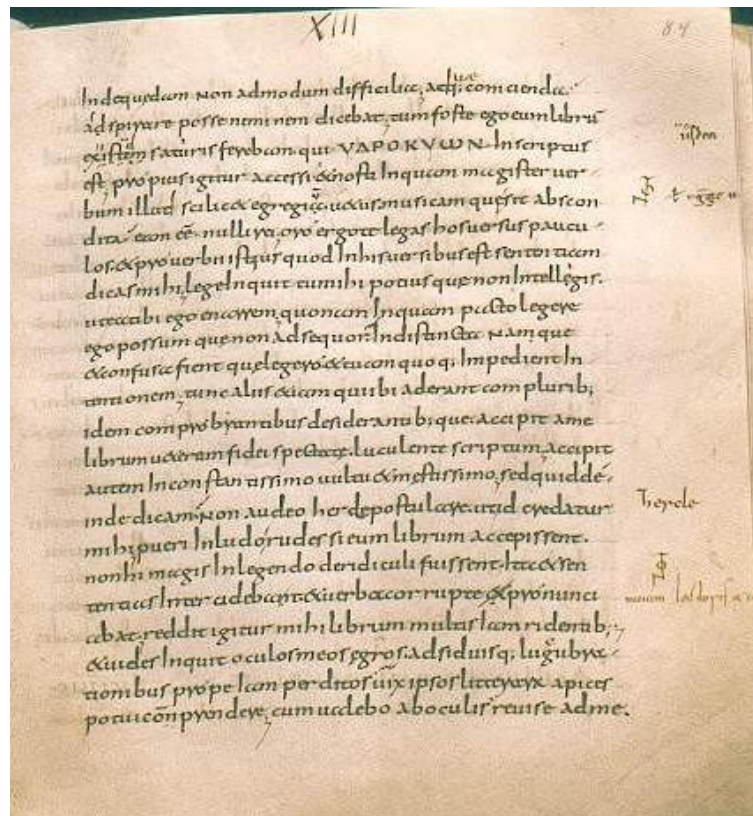 XIII 84
In dequedam non admodum difficilia, atq; comicienda
adspirare posse neminem dicebat, tum foste ego eum librū
existem saturis ferebam qui ΥΔΡΟΚΥΩΝ Inscriptus
est, propius igitur accessi & nosti Inquam magister ver
bum illud scilic& egregiū u&us musicam que sit abscon
dita eam eē nulli rei, oro ergo te legas hos versus paucu
los & proverbii istius quod In his versibus est sententiam
dicas mihi, lege Inquit tu mihi potius que non Intellegis.
ut ea tibi ego enarrem, quonam Inquam pacto legere
ego possum que non adsequor, Indistincta Namque
& confusa fient que legero & te iam quoq; Impedient In
tentionem, tunc alius &iam qui ibi aderant compluribꝫ
idem comprobrantibus desiderantibꝫque accipit a me
librum u&erem fidei spectate luculente scriptum, accipit
autem Inconstantissimo vultu & mestissimo, sed quid dé
inde dicam, Non audeo hercle postulare, ut id credatur
mihi, pueri In ludo rudes si eum librum accepissent.
non hi magis In legendo deridiculi fuissent. Ita & sen
tentias Intercidebant & verba corrupte & pronunci
abat, reddit igitur mihi librum multis Iam ridentibꝫ
& uides Inquit oculos meos egros, adsiduisq; lugubra
tionibus prope Iam perditos uix ipsos litterarum apices
potui conprondere, cum valebo ab oculis revise ad me.
hercle